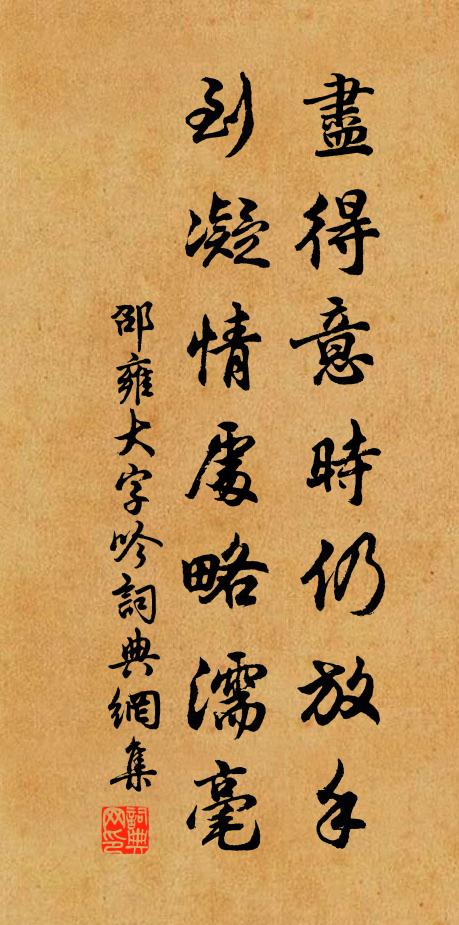 盡得意時仍放手
到凝情處略濡毫
邵雍大字吟詞典網集
詞典网印